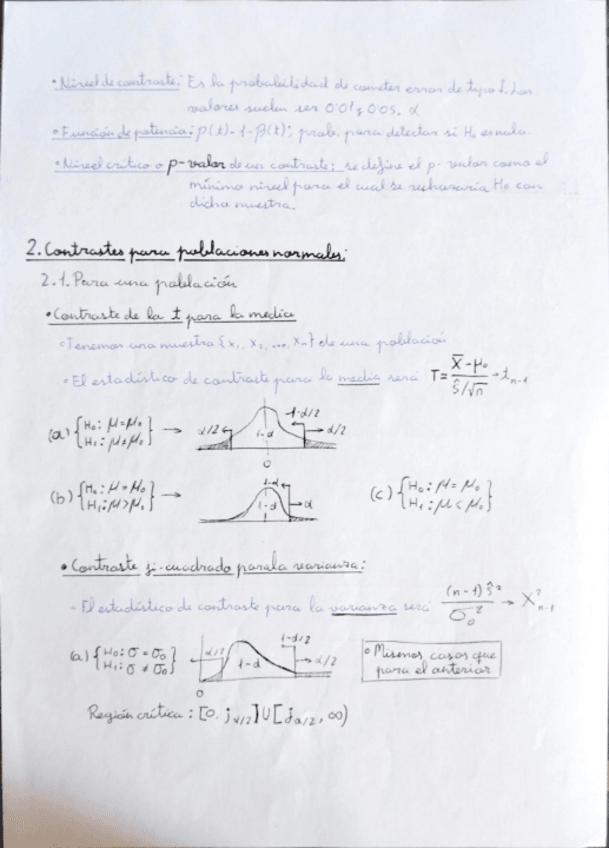 • Nivel de contraste: Es la probabilidad de cometer error de tipo I. Los
valores suelen ser 0'01 y 0'05. α
• Función de potencia: P(t) = 1 - β(t); prob. para detectar si H₀ es nula.
• Nivel crítico o p-valor de un contraste: se define el p-valor como el
mínimo nivel para el cual se rechazaría H₀ con
dicha muestra.
2. Contrastes para poblaciones normales:
2.1. Para una población
• Contraste de la t para la media
• Tenemos una muestra {x₁, x₂, ..., xₙ} de una población
• El estadístico de contraste para la media será T = (X̄ - μ₀) / (ŝ/√n) → tₙ₋₁
(a) {H₀: μ = μ₀ H₁: μ ≠ μ₀} → α/2 1-α 1-α/2 α/2
0
(b) {H₀: μ = μ₀ H₁: μ > μ₀} → 1-α 1-α α
(c) {H₀: μ = μ₀ H₁: μ < μ₀}
• Contraste ji-cuadrado para la varianza:
- El estadístico de contraste para la varianza será (n-1)ŝ² / σ₀² → X²ₙ₋₁
(a) {H₀: σ = σ₀ H₁: σ ≠ σ₀} α/2 1-α 1-α/2 α/2
0
• Mismos casos que
para el anterior
Región crítica: [0, j_α/2] U [j_α/2, ∞)